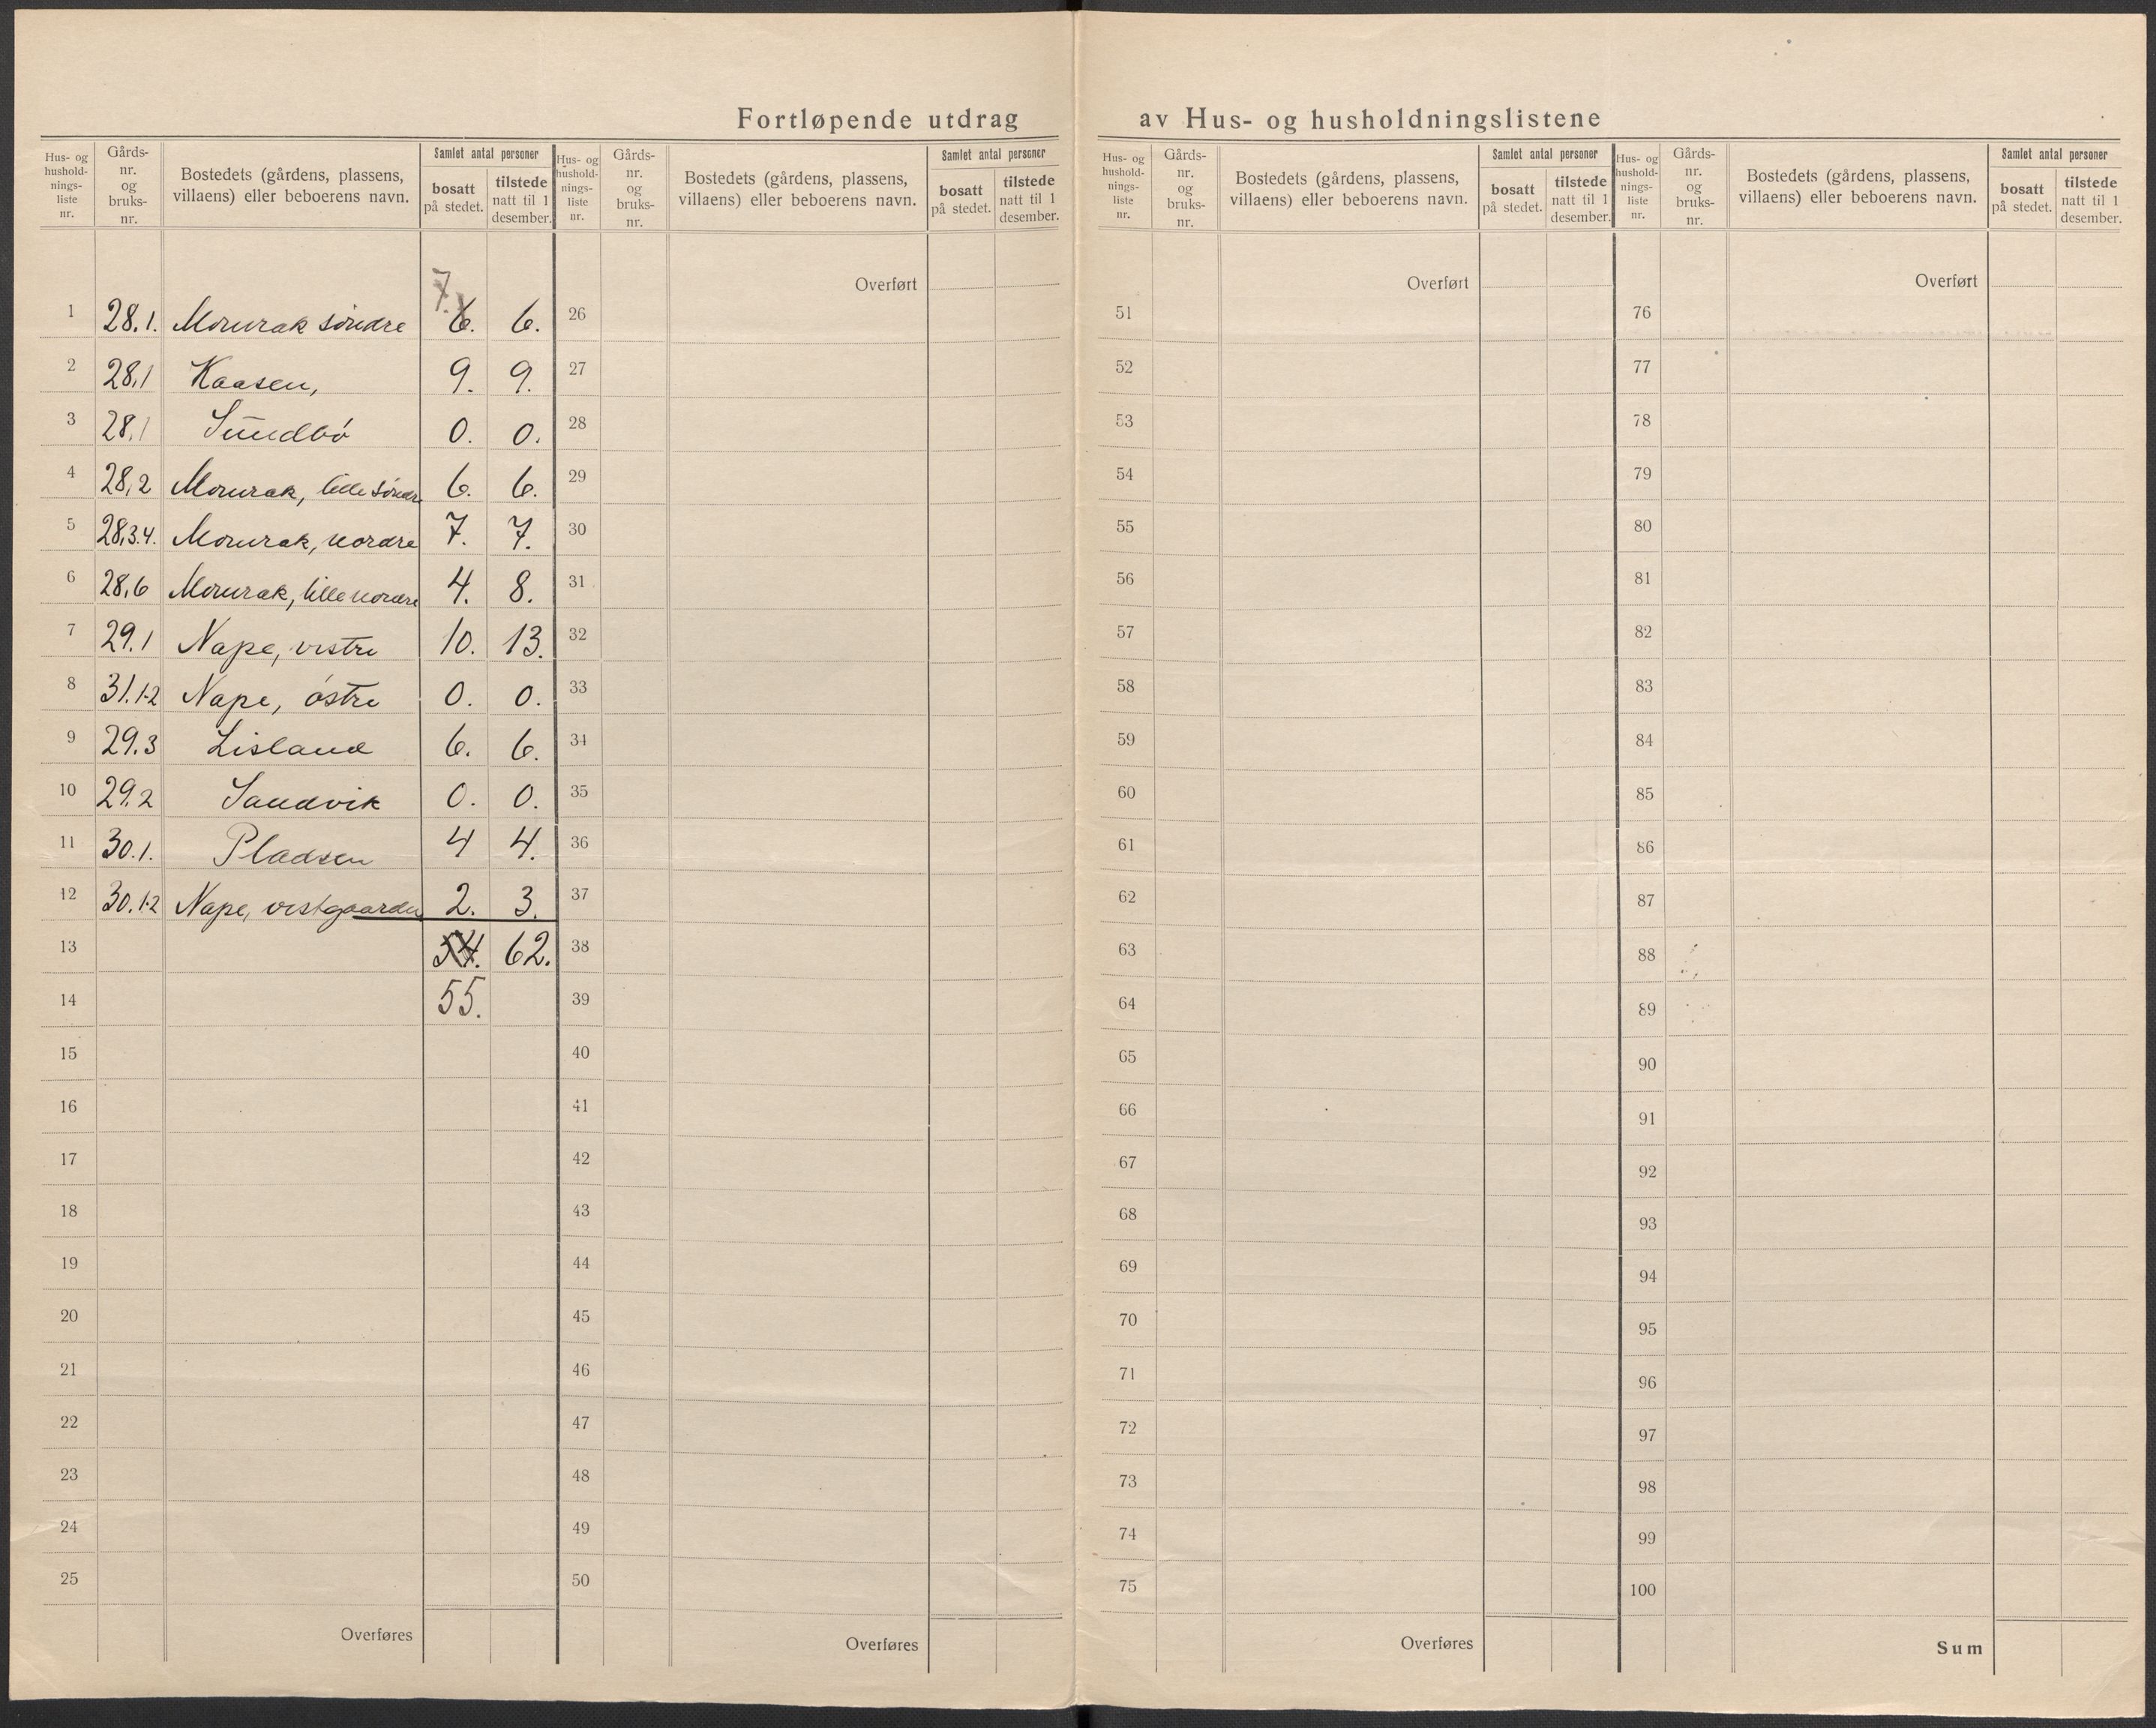 Fortløpende utdrag av Hus- og husholdningslistene
Hus- og hushold-nings-liste nr. Gårds-nr. og bruks-nr. Bostedets (gårdens, plassens, villaens) eller beboerens navn. Samlet antal personer bosatt på stedet. tilstede natt til 1 desember.
Hus- og hushold-nings-liste nr. Gårds-nr. og bruks-nr. Bostedets (gårdens, plassens, villaens) eller beboerens navn. Samlet antal personer bosatt på stedet. tilstede natt til 1 desember.
Hus- og hushold-nings-liste nr. Gårds-nr. og bruks-nr. Bostedets (gårdens, plassens, villaens) eller beboerens navn. Samlet antal personer bosatt på stedet. tilstede natt til 1 desember.
Hus- og hushold-nings-liste nr. Gårds-nr. og bruks-nr. Bostedets (gårdens, plassens, villaens) eller beboerens navn. Samlet antal personer bosatt på stedet. tilstede natt til 1 desember.
7.
1 28.1. Momrak söndre 6. 6.
2 28,1 Kaasen, 9. 9.
3 28,1 Sundbö 0. 0.
4 28,2 Momrak, lille söndre 6. 6.
5 28,3.4. Momrak, nordre 7. 7.
6 28,6 Momrak, lille nordre 4. 8.
7 29.1 Nape, vestre 10. 13.
8 31.1-2 Nape, östre 0. 0.
9 29.3 Lisland 6. 6.
10 29.2 Sandvik 0. 0.
11 30.1. Pladsen 4 4.
12 30.1-2 Nape, vestgaarden 2. 3.
13 54. 62.
14 55.
15
16
17
18
19
20
21
22
23
24
25
Overføres
Overført
26
27
28
29
30
31
32
33
34
35
36
37
38
39
40
41
42
43
44
45
46
47
48
49
50
Overføres
Overført
51
52
53
54
55
56
57
58
59
60
61
62
63
64
65
66
67
68
69
70
71
72
73
74
75
Overføres
Overført
76
77
78
79
80
81
82
83
84
85
86
87
88
89
90
91
92
93
94
95
96
97
98
99
100
Sum